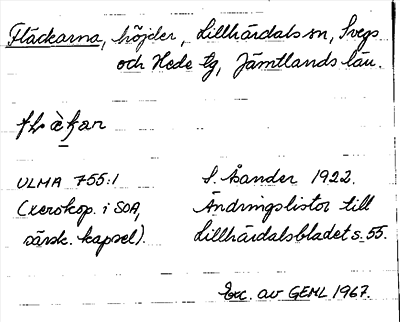 Fläckarna, höjder, Lillhärdals sn, Svegs
och Hede tg, Jämtlands län.
flàkan
ULMA 755:1 S. Åsander 1922.
(xerokop. i SOA, Ändringslistor till
särsk. kapsel). Lillhärdalsbladet s. 55.
Exc. av GEML 1967.